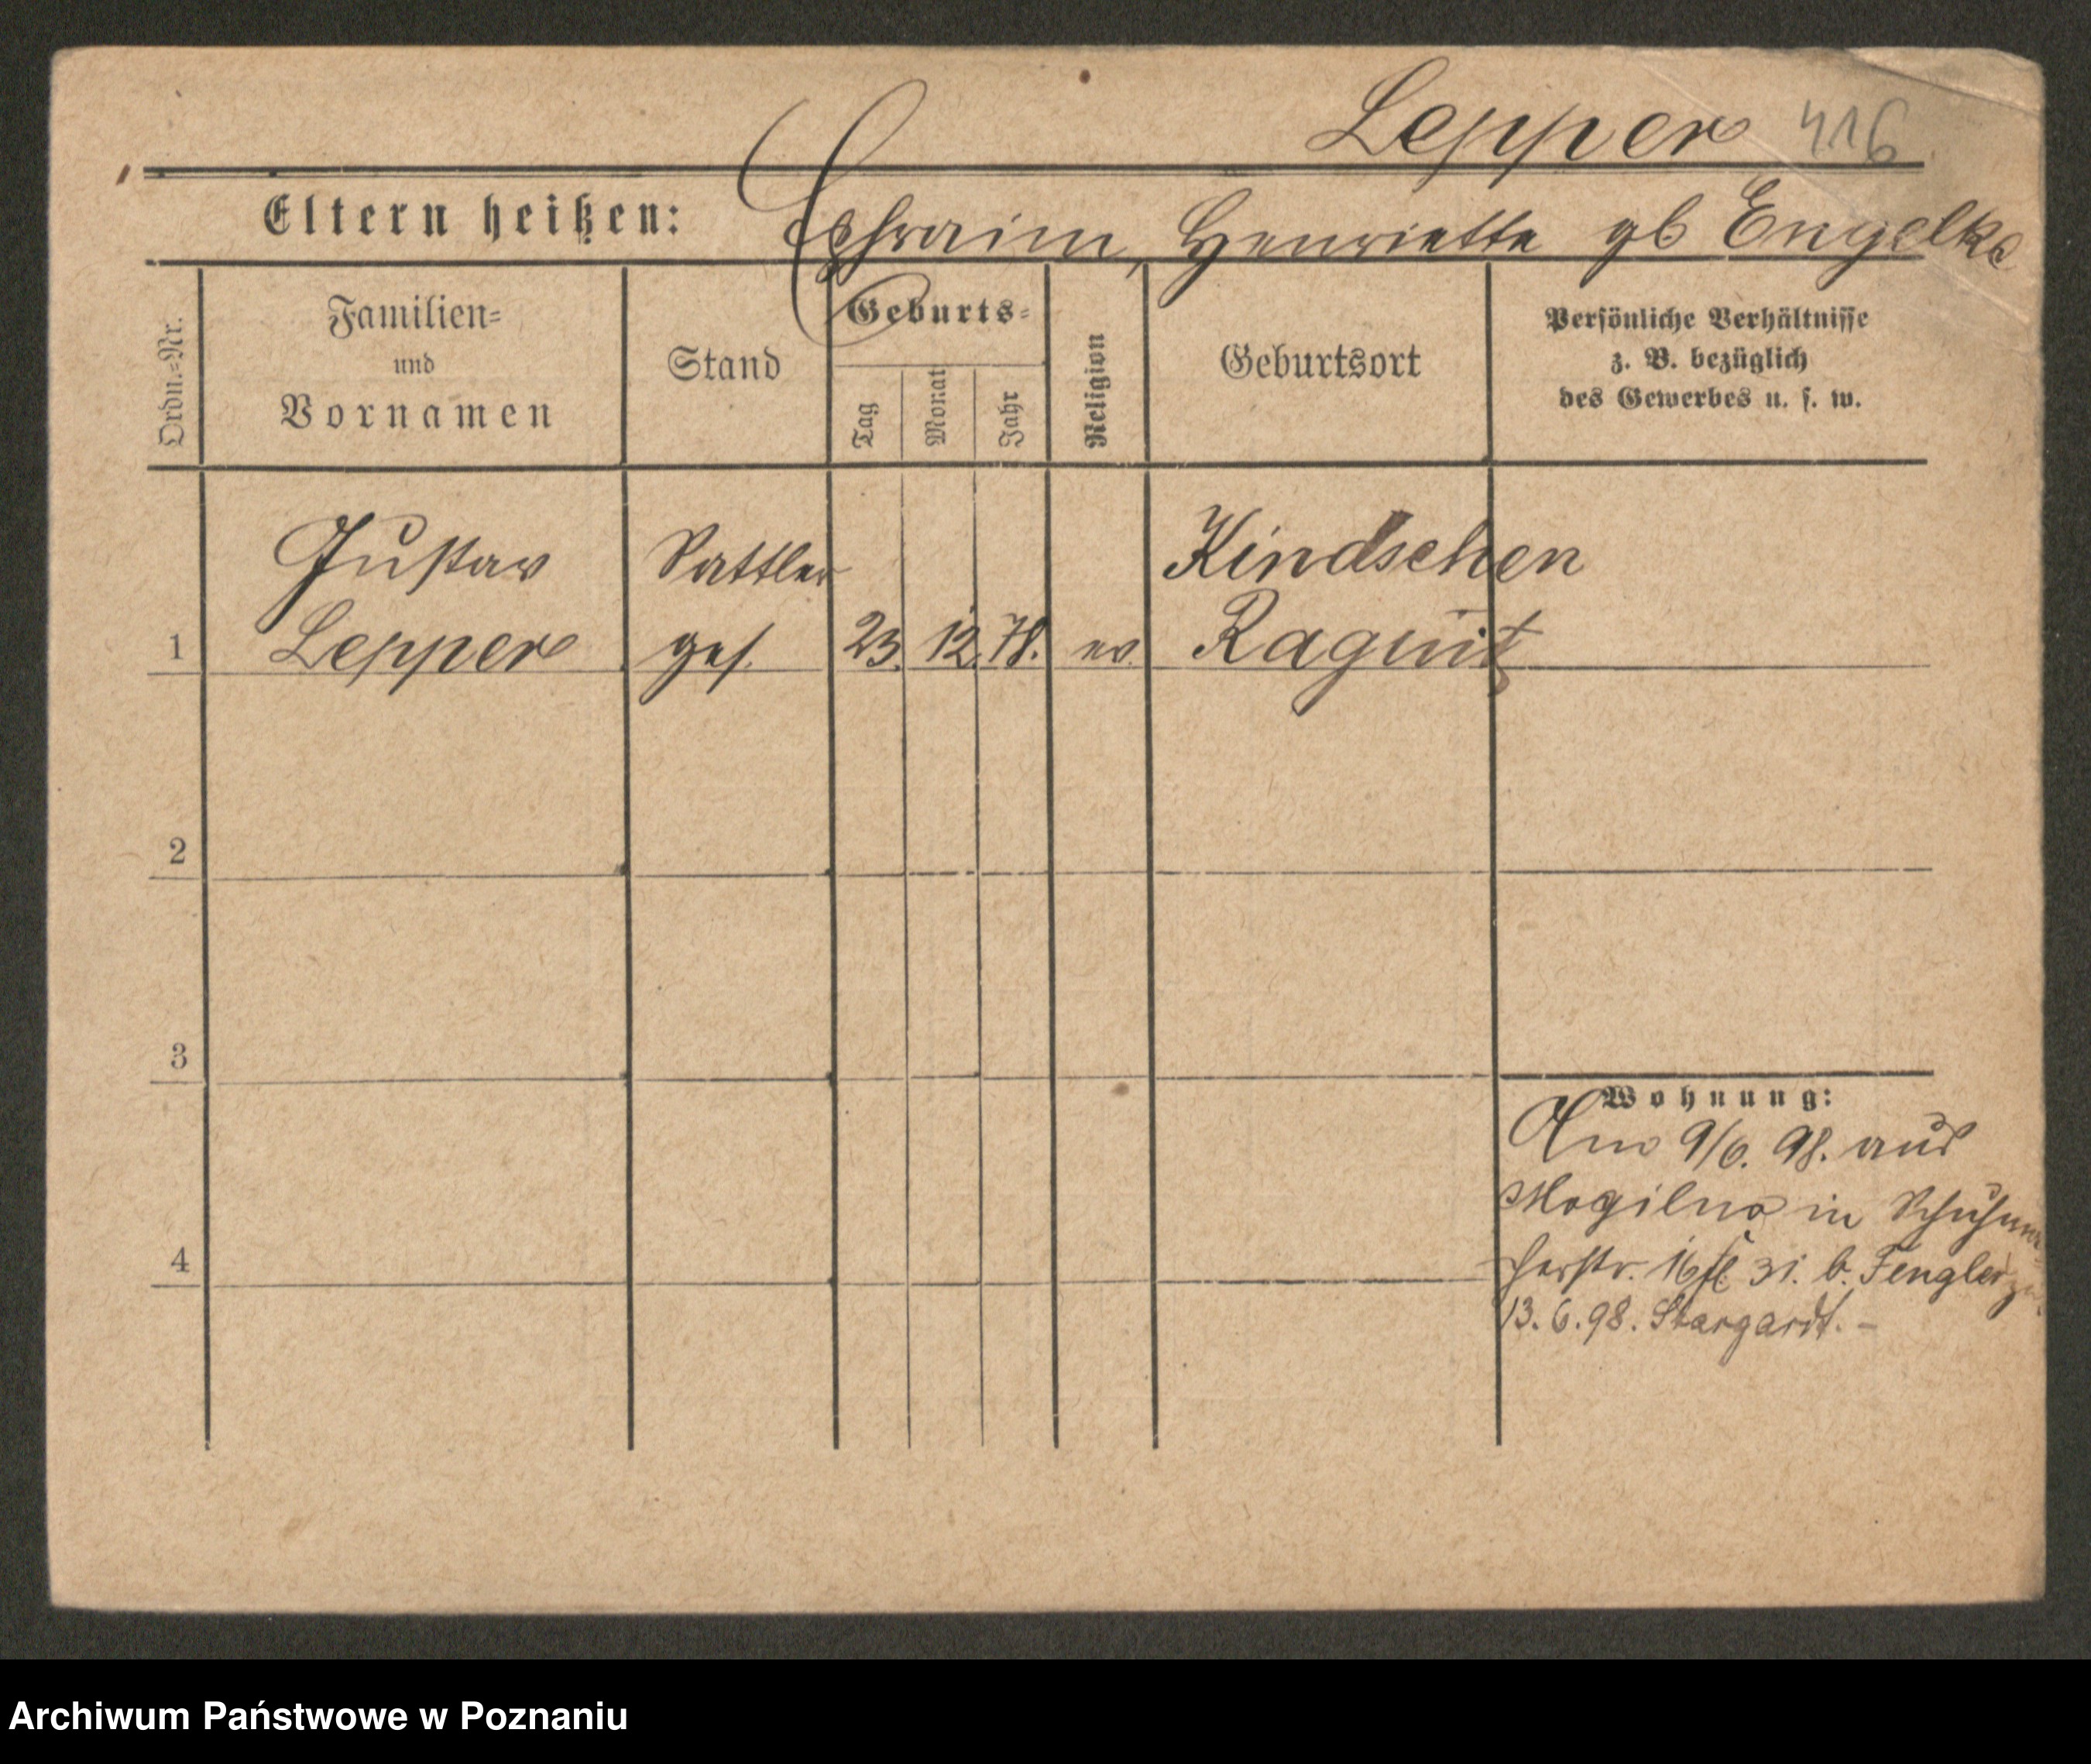 Lepper 416
Eltern heißen: Ephraim, Henriette gb Engelke
Ordn.-Nr.
Familien-
und
Vornamen
Stand
Geburts-
Tag
Monat
Jahr
Religion
Geburtsort
Persönliche Verhältnisse
z. B. bezüglich
des Gewerbes u. s. w.
Gustav Sattler Kindschen
1 Lepper ges. 23. 12. 78. ev. Ragnit
2
3
4
Wohnung:
Am 9/6. 98. aus
Mogilno in Schuhma
cherstr. 16 31. b. Fengler
13. 6. 98. Stargardt. -
Archiwum Państwowe w Poznaniu